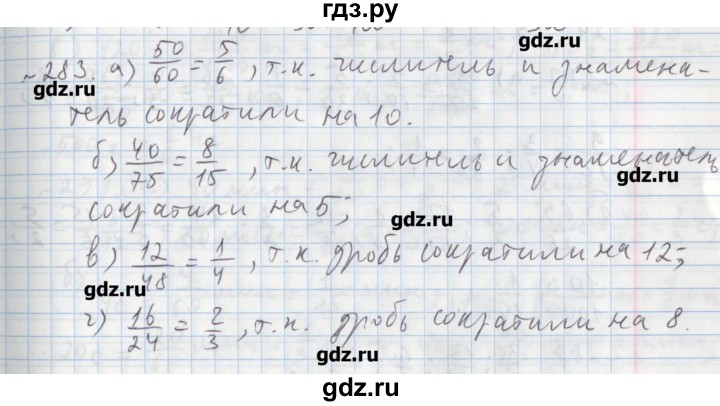 гдз.ру
gdz.ru
№283. а) 50/60 = 5/6, т.к. числитель и знамена-
gdz.ru
тель сократили на 10.
б) 40/75 = 8/15, т.к. числитель и знаменатель
gdz.ru
сократили на 5;
gdz.ru
в) 12/48 = 1/4, т.к. дробь сократили на 12;
gdz.ru
г) 16/24 = 2/3, т.к. дробь сократили на 8.
gdz.ru
gdz.ru